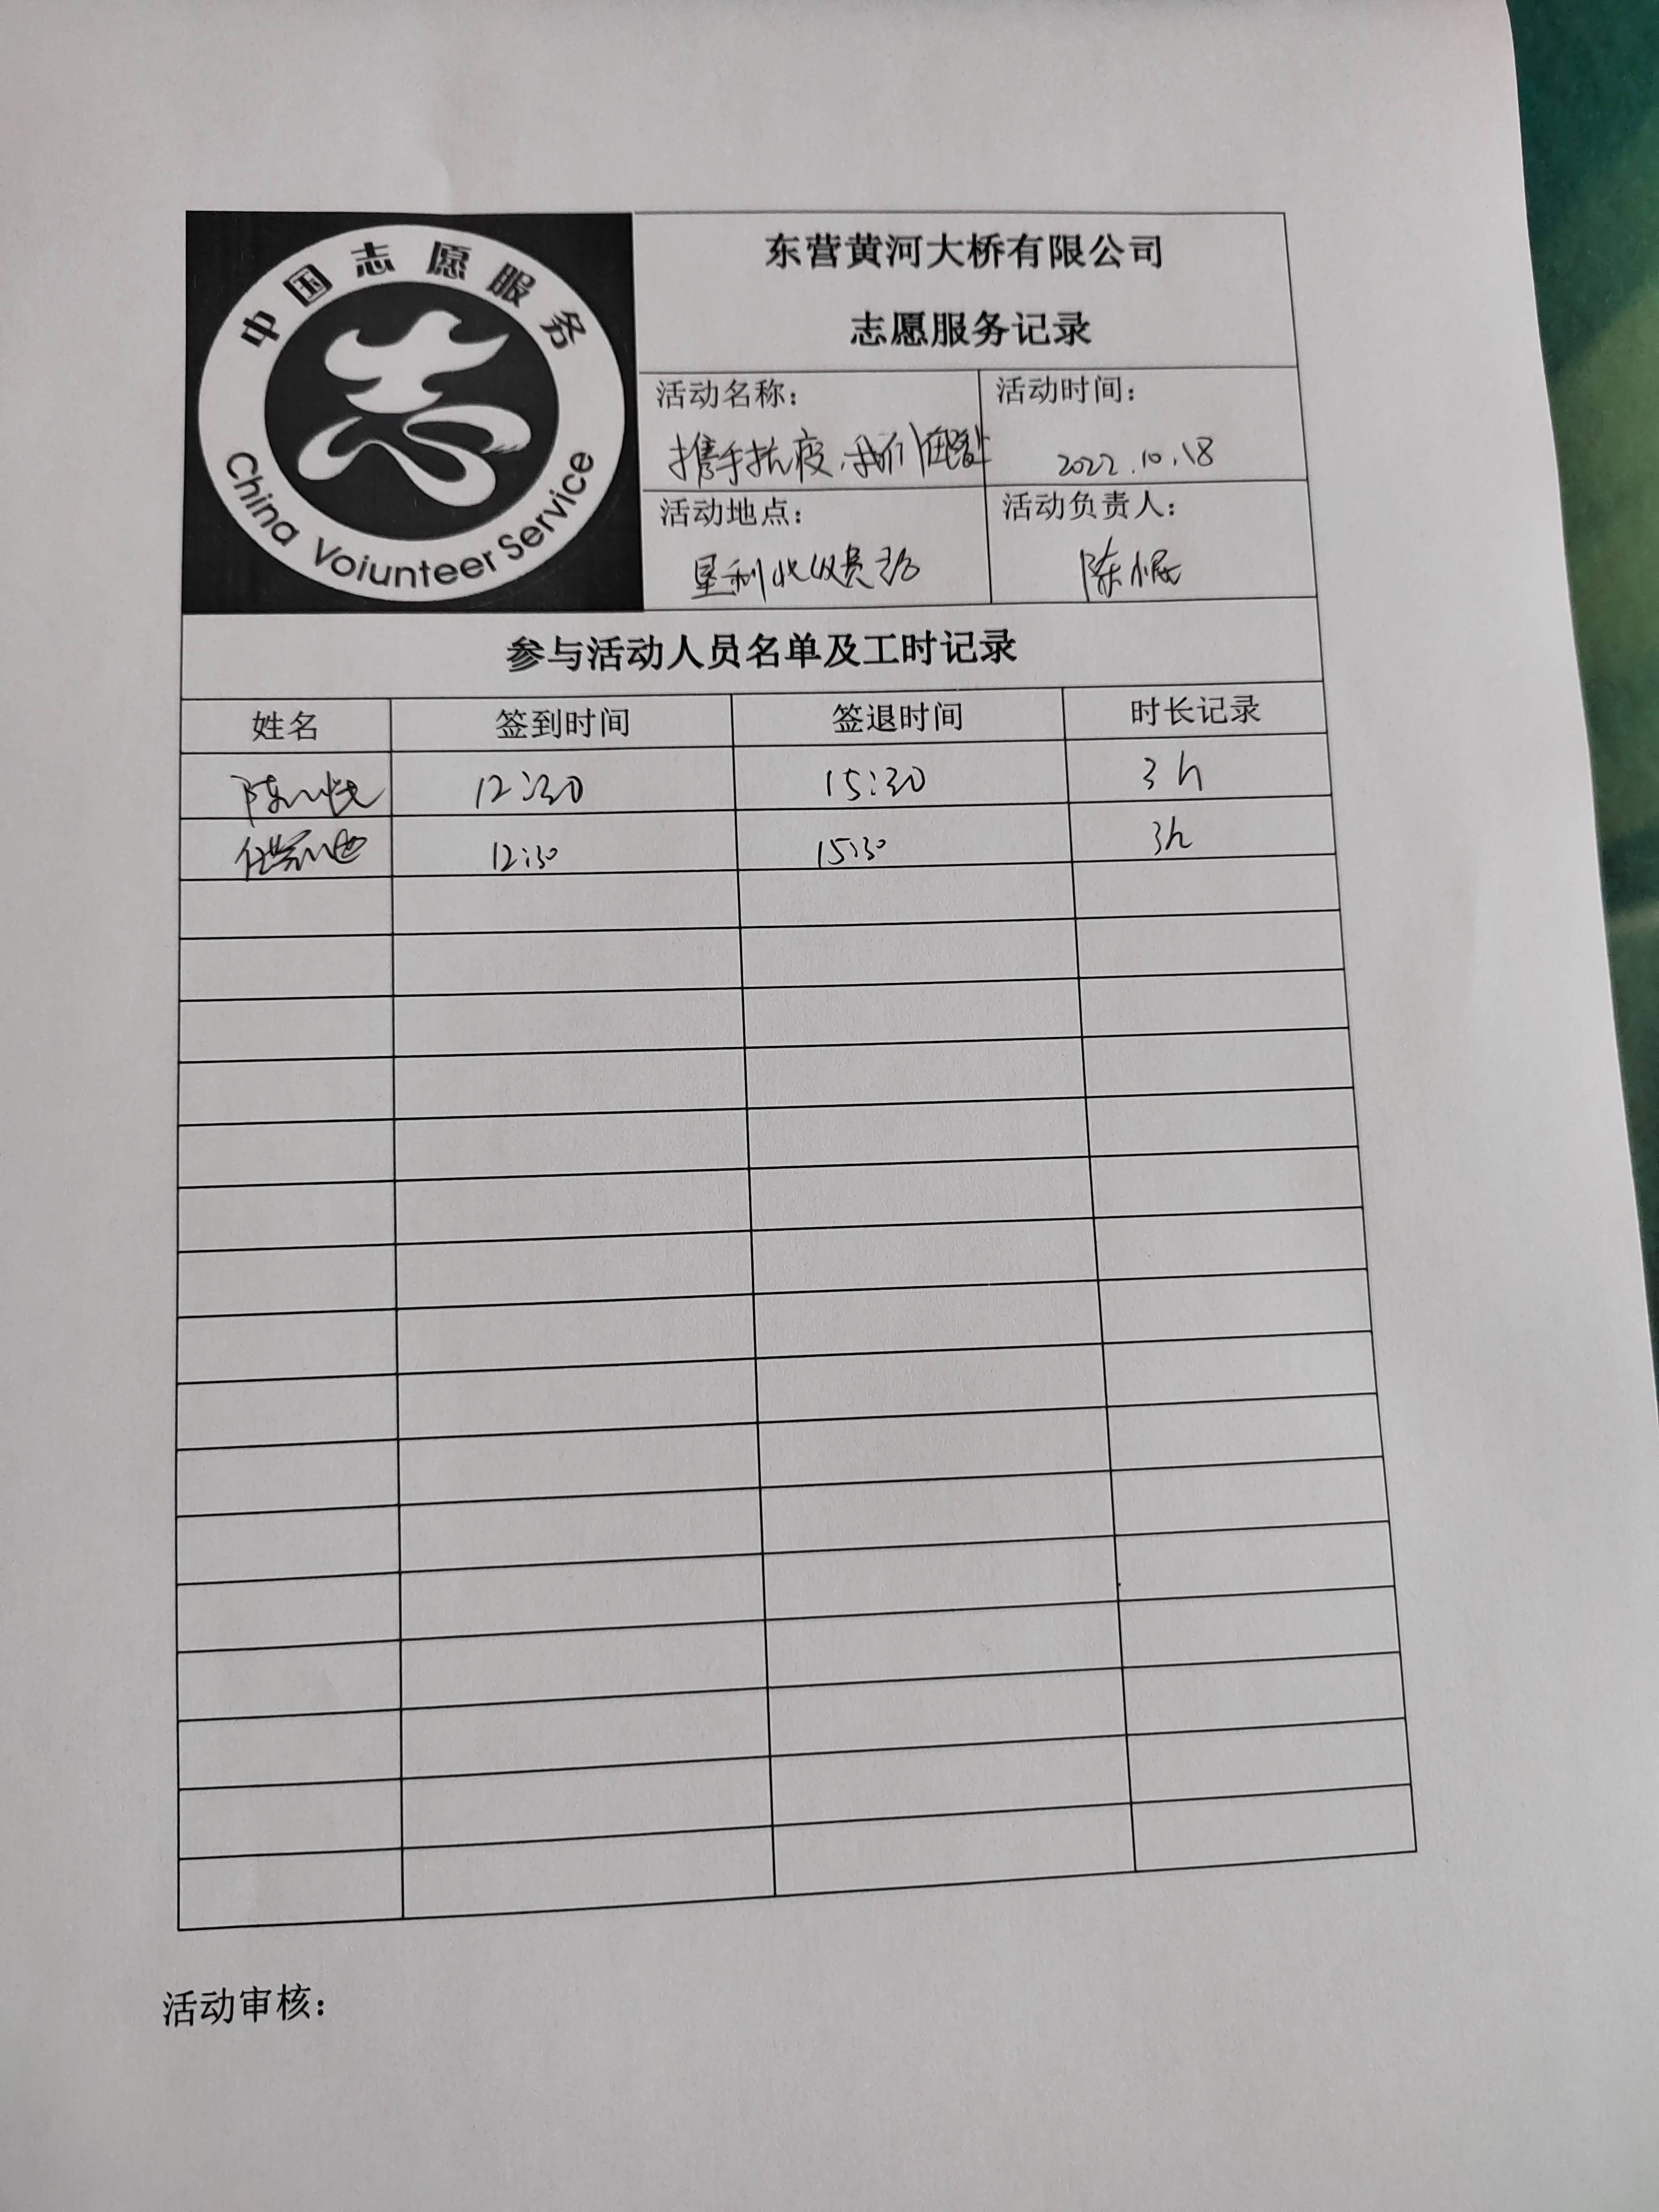 中国志愿服务
China Voiunteer Service
东营黄河大桥有限公司
志愿服务记录
活动名称：
携手抗疫，我们在路上
活动时间：
2022.10.18
活动地点：
垦利收费站
活动负责人：
陈
参与活动人员名单及工时记录
姓名 签到时间 签退时间 时长记录
陈 12:30 15:30 3h
任 12:30 15:30 3h
活动审核：